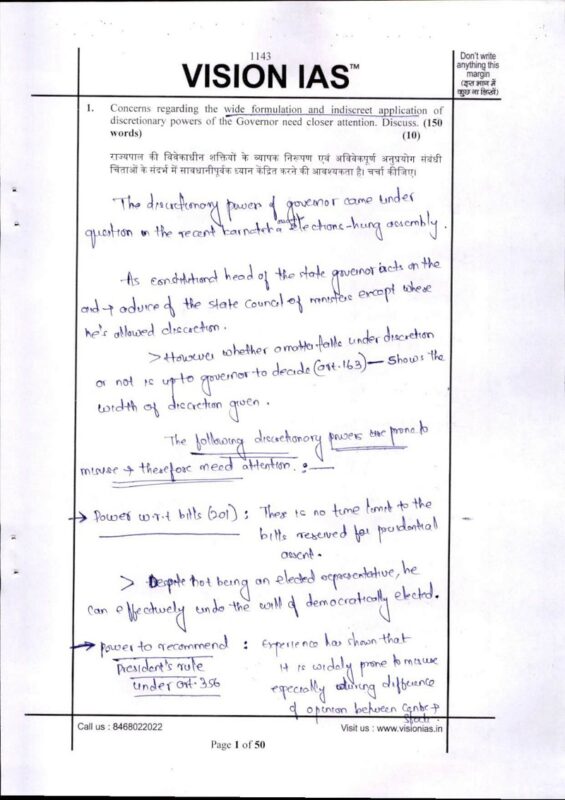 1143
VISION IAS™
Don't write
anything this
margin
(इस भाग में
कुछ ना लिखें)
1. Concerns regarding the wide formulation and indiscreet application of
discretionary powers of the Governor need closer attention. Discuss. (150
words) (10)
राज्यपाल की विवेकाधीन शक्तियों के व्यापक निरूपण एवं अविवेकपूर्ण अनुप्रयोग संबंधी
चिंताओं के संदर्भ में सावधानीपूर्वक ध्यान केंद्रित करने की आवश्यकता है। चर्चा कीजिए।
The discretionary power of governor came under
question in the recent Karnataka elections-hung assembly.
As constitutional head of the state governor acts on the
aid + advice of the state Council of ministers except where
he's allowed discretion.
> However whether a matter falls under discretion
or not is up to governor to decide (art.163) — shows the
width of discretion given.
The following discretionary powers are prone to
misuse + therefore need attention. :—
→ Power w.r.t bills (201) : There is no time limit to the
bills reserved for presidential
assent.
> Despite not being an elected representative, he
can effectively undo the will of democratically elected.
→ Power to recommend : Experience has shown that
President's rule It is widely prone to misuse
under art.356 especially during difference
of opinion between Centre +
State.
Call us : 8468022022 Visit us : www.visionias.in
Page 1 of 50